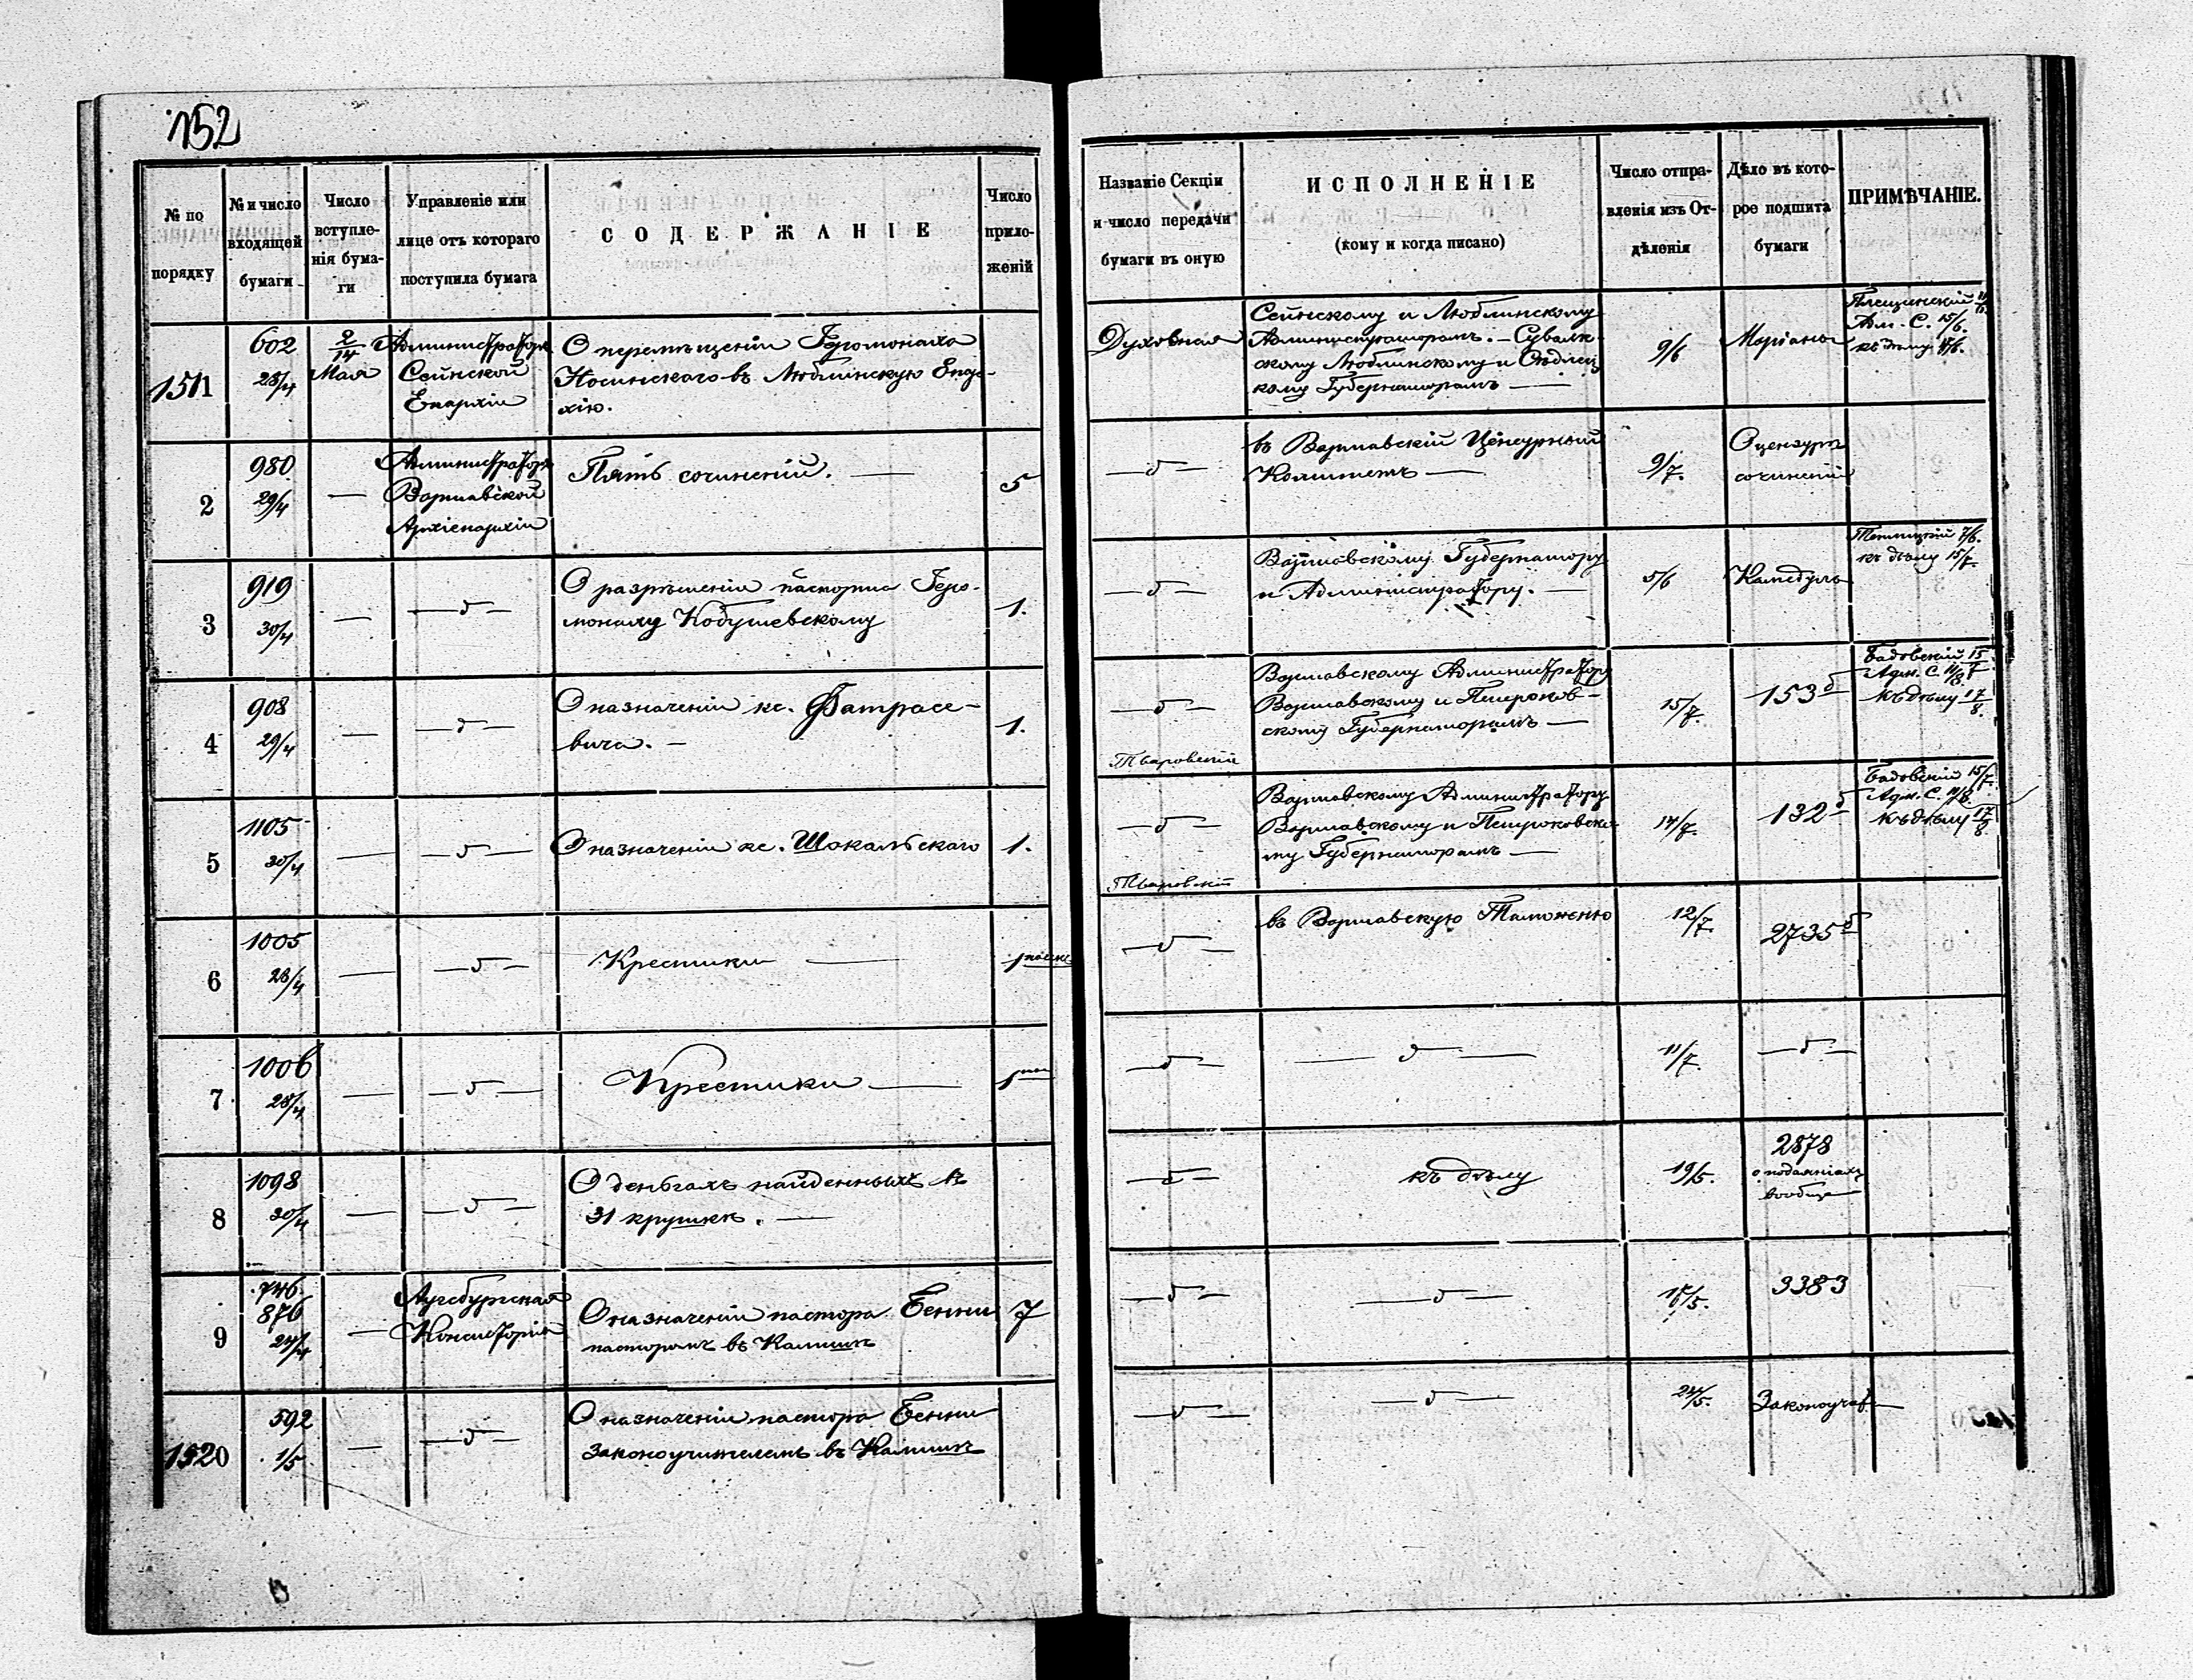 152
№ по порядку
№ и число входящей бумаги
Число вступленія бумаги
Управленіе или лице отъ котораго поступила бумага
СОДЕРЖАНІЕ
Число приложеній
Названіе Секціи и число передачи бумаги въ оную
ИСПОЛНЕНІЕ (кому и когда писано)
Число отправленія изъ Отдѣленія
Дѣло въ которое подшита бумаги
ПРИМѢЧАНІЕ.
1511
602
28/4
2/14 Мая
Администраторъ
Сейнской
Епархіи
О перемѣщеніи Іеромонаха
Носинскаго въ Люблинскую Епар-
хію.
Духовная
Сейнскому и Люблинскому
Администраторамъ. – Сувалк-
скому Люблинскому и Сѣдлец
кому Губернаторамъ —
9/6
Маріаны
Адм. С. 15/6.
къ дѣлу
2
980
29/4
—
Администраторъ
Варшавской
Архіепархіи
Пять сочиненій. —
5
— д —
въ Варшавскій Ценсурный
Комитетъ —
9/7.
О цензурѣ
сочиненій
3
919
30/4
—
— д —
О разрѣшеніи паспорта Іеро-
монаху Кобушевскому
1.
— д —
Варшавскому Губернатору
и Администратору. —
5/6
Камедулы
7/6.
къ дѣлу 15/7.
4
908
29/4
—
— д —
О назначеніи кс. Фатрасе-
вича. —
1.
— д —
Тваровскій
Варшавскому Администратору
Варшавскому и Петроков-
скому Губернаторамъ —
15/7.
153 б
Бадовскій 15/7
Адм. С. 11/8
Къ дѣлу 17/8.
5
1105
30/4
—
— д —
О назначеніи кс. Шокальскаго
1.
— д —
Тваровскій
Варшавскому Администратору
Варшавскому и Петроковско-
му Губернаторамъ —
14/7.
132 б
Бадовскій 15/7.
Адм. С. 11/8
Къ дѣлу 17/8
6
1005
28/4
—
— д —
Крестики —
— д —
въ Варшавскую Таможню
12/7.
2735 б
7
1006
28/4
—
— д —
Крестики —
— д —
— д —
11/7.
— д —
8
1098
30/4
—
— д —
О деньгахъ найденныхъ въ
31 кружкѣ. —
— д —
къ дѣлу
19/5.
2878
о подаяніяхъ
вообще
9
746
876
24/4
—
Аугсбургская
Консисторія
О назначеніи пастора Бенни
пасторомъ въ Калишѣ
7
— д —
— д —
3383
1520
592
1/5
—
— д —
О назначеніи пастора Бенни
законоучителемъ въ Калишѣ
— д —
— д —
24/5.
Законоучат.